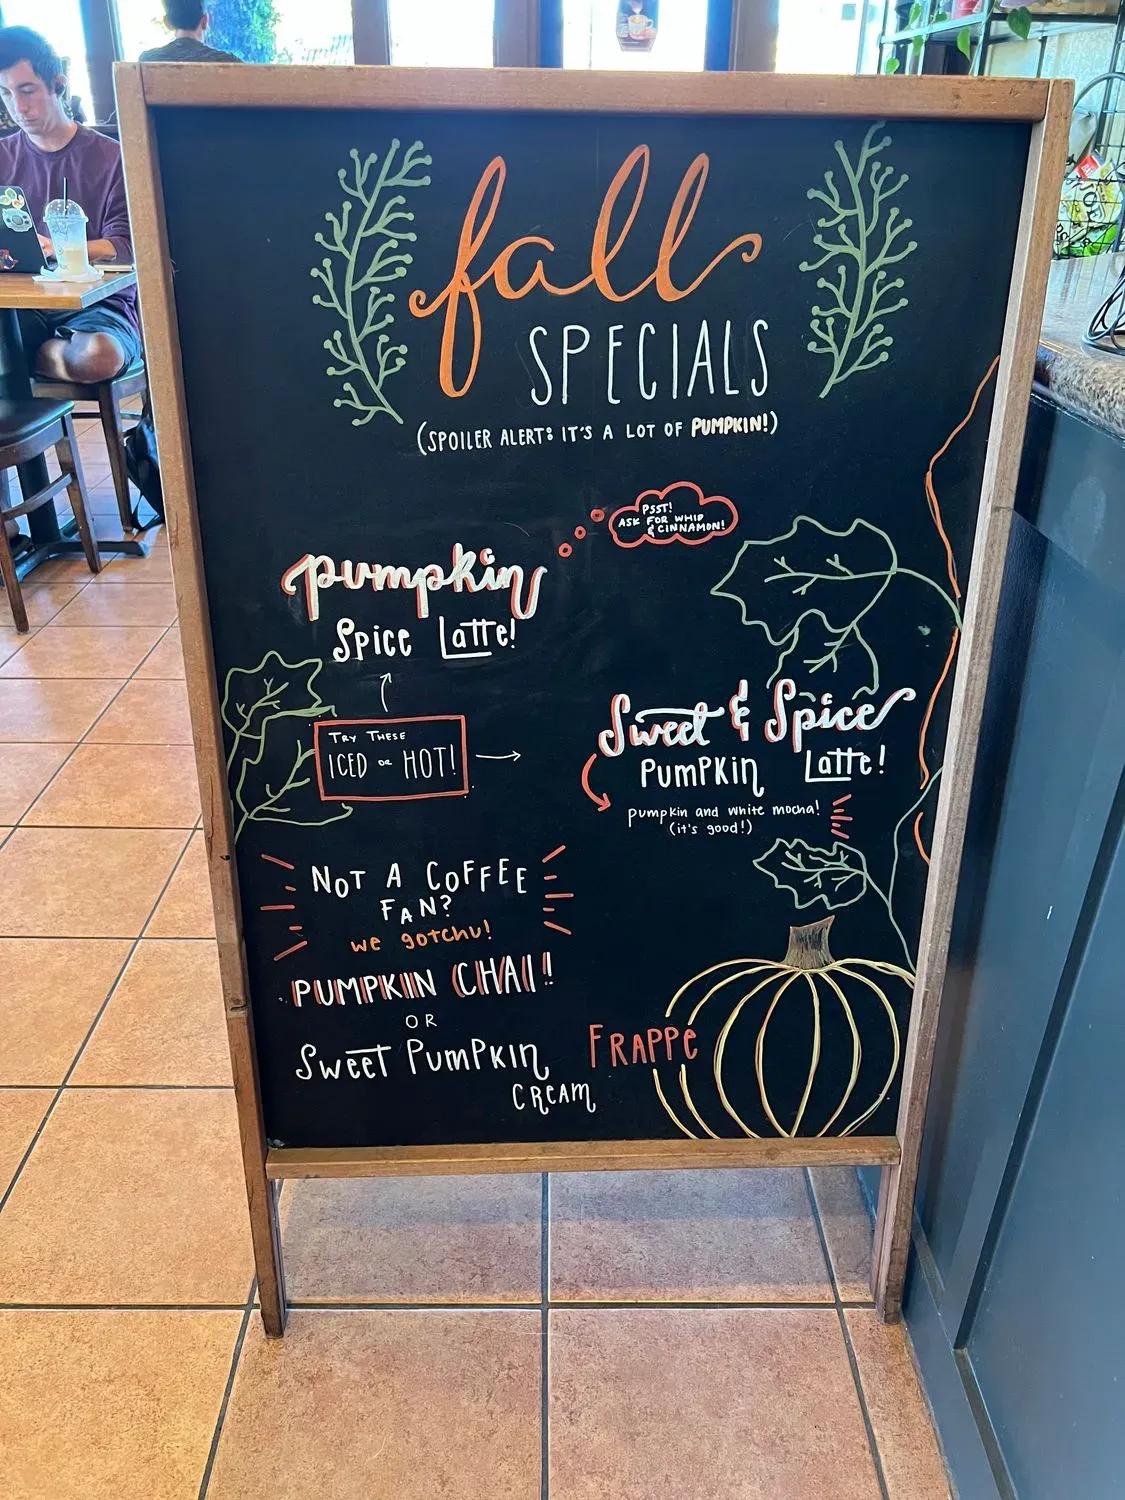 fall
SPECIALS
(SPOILER ALERT: IT'S A LOT OF PUMPKIN!)
PSST!
ASK FOR WHIP
& CINNAMON!
pumpkin
Spice Latte!
TRY THESE
ICED OR HOT!
Sweet & Spice
PUMPKIN Latte!
pumpkin and white mocha!
(it's good!)
NOT A COFFEE
FAN?
we gotchu!
PUMPKIN CHAI!!
OR
Sweet PUMPKIN
CREAM
FRAPPE